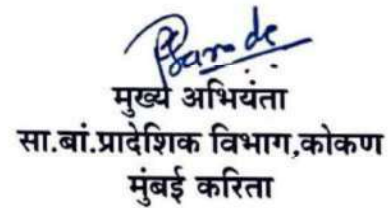 मुख्य अभियंता
सा.बां.प्रादेशिक विभाग,कोकण
मुंबई करिता